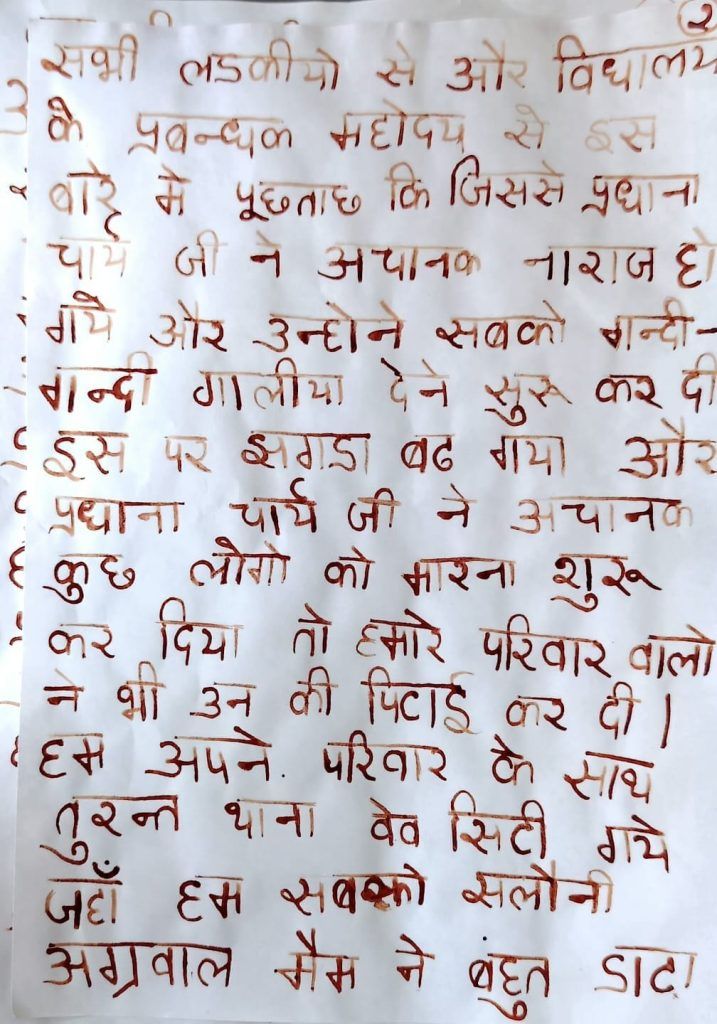 २
सभी लडकीयो से और विधालय
के प्रबन्धक महोदय से इस
बारे मे पूछताछ कि जिससे प्रधाना
चार्य जी ने अचानक नाराज हो
गये और उन्होने सबको गन्दी-
गन्दी गालीया देने सुरू कर दी
इस पर झगडा बढ गया और
प्रधाना चार्य जी ने अचानक
कुछ लोगो को मारना शुरू
कर दिया तो हमारे परिवार वालो
ने भी उन की पिटाई कर दी।
हम अपने परिवार के साथ
तुरन्त थाना वेव सिटी गये
जहाँ हम सबको सलौनी
अग्रवाल मैम ने बंहुत डाटा